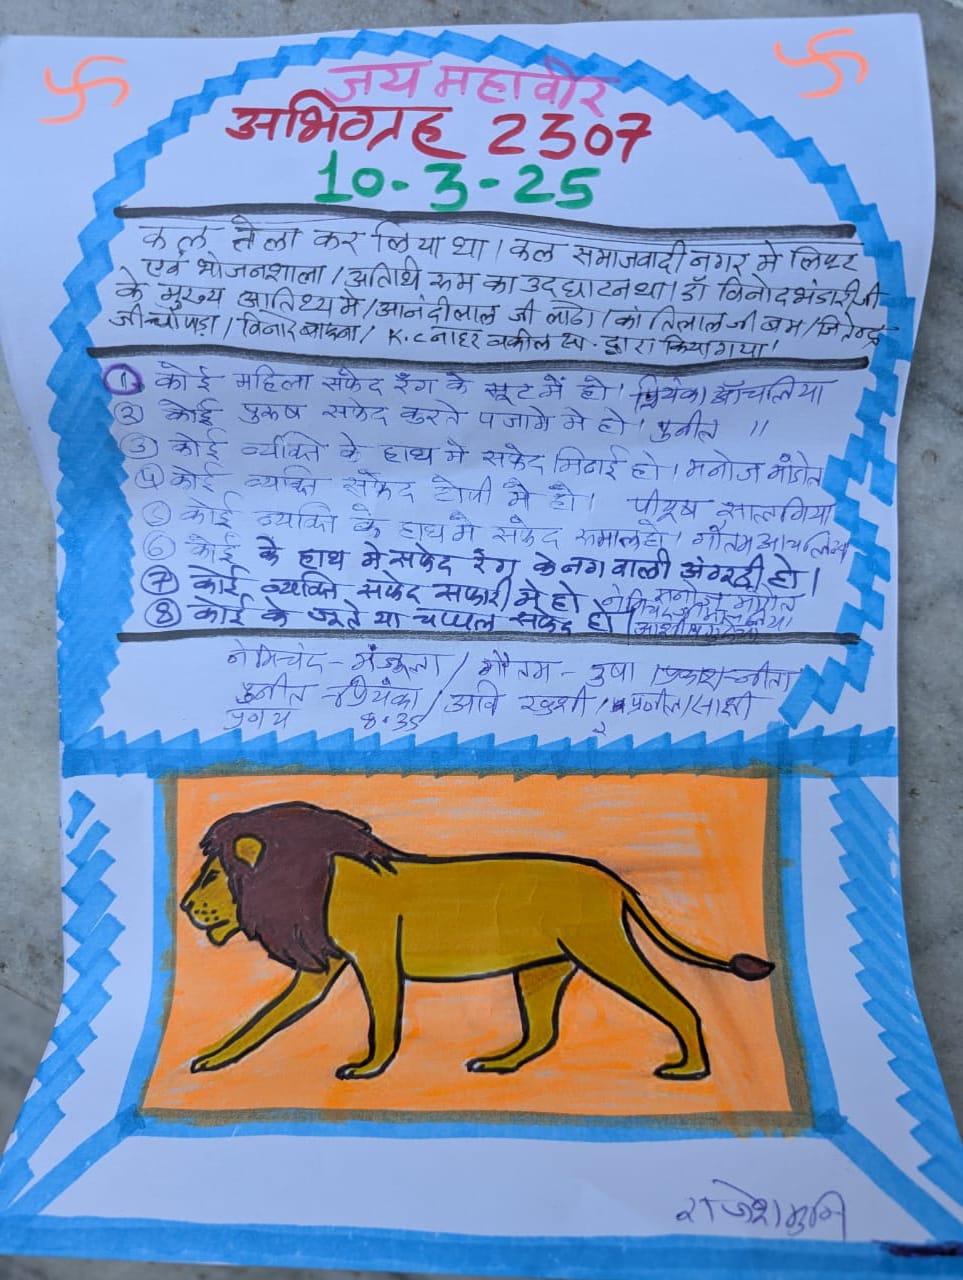 जय महावीर
अभिग्रह 2307
10-3-25
कल तेला कर लिया था। कल समाजवादी नगर मे लिफ्ट
एवं भोजनशाला/अतिथि रूम का उदघाटन था। डॉ विनोद भंडारी जी
के मुख्य आतिथ्य मे/आनंदीलाल जी लोढा/कांतिलाल जी बम/जितेन्द्र
जी चौपड़ा/विनोद/K.C नाहर वकील सा. द्वारा किया गया।
① कोई महिला सफेद रंग के सूट में हो। प्रियंका आँचलिया
② कोई पुरुष सफेद कुरते पजामे मे हो। पुनीत 11
③ कोई व्यक्ति के हाथ मे सफेद मिठाई हो। मनोज
④ कोई व्यक्ति सफेद टोपी मे हो। पीयूष सालगिया
⑤ कोई व्यक्ति के हाथ मे सफेद रूमाल हो। गौतम आंचलिया
⑥ कोई के हाथ मे सफेद रंग के नग वाली अंगूठी हो।
⑦ कोई व्यक्ति सफेद सफारी मे हो
⑧ कोई के जूते या चप्पल सफेद हो।
नेमिचंद-मंजुला/गौतम-उषा/प्रकाश-नीता
पुनीत-प्रियंका/अवि खुशी/प्रनीत/साक्षी
8.35
राजेशमुनि